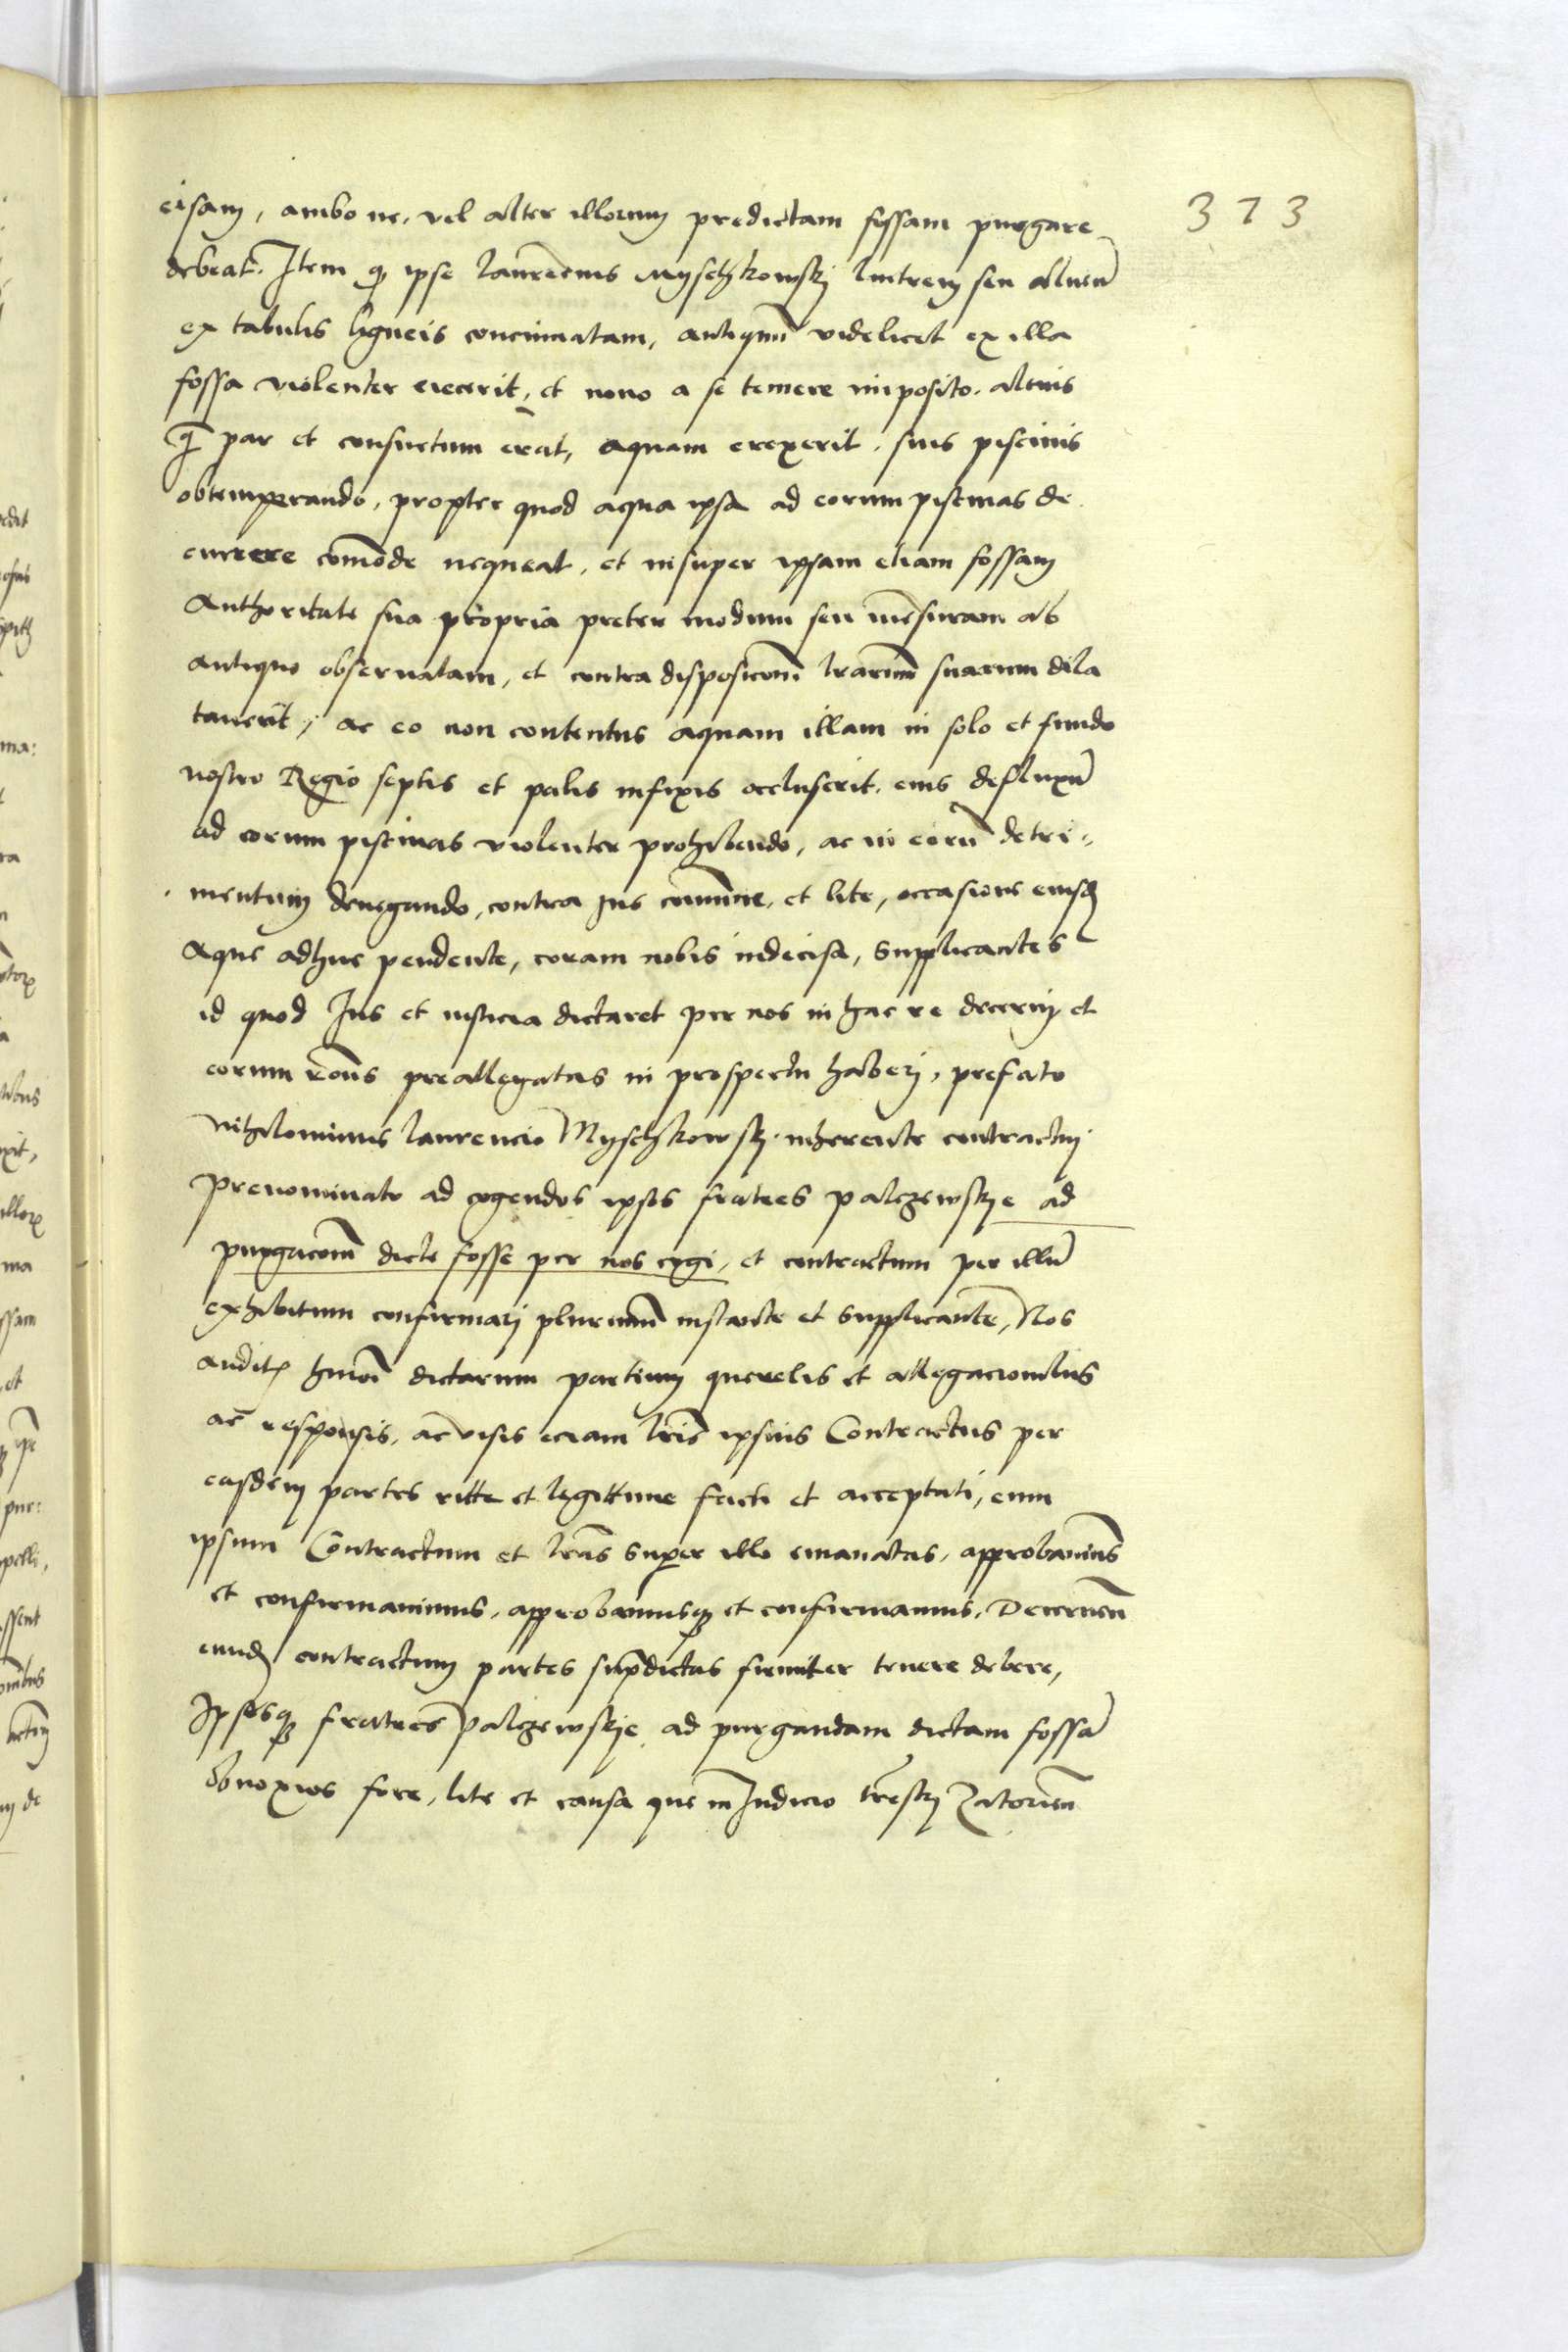 373
cisam, ambo ne, vel alter illorum predictam fossam purgare
debeat. Item q̃ ipse laurẽcius Myschkowskj lintrem seu alueũ
ex tabulis ligneis concinnatam, antiquũ videlicet ex illa
fossa violenter eiecerit, et nouo a se temere imposito, altius
q̃ par et consuetum erat, aquam erexerit, suis piscinis
obtemperando, propter quod aqua ipsa ad eorum piscinas de
currere cõmode nequeat, et insuper ipsam etiam fossam
Authoritate sua propria preter modum seu mẽsuram ab
antiquo obseruatam, et contra disposicom̃ lrarum̃ suarum dila
tauerit, ac eo non contentus aquam illam in solo et fundo
nostro Regio septis et palis infixis occluserit, eius defluxũ
ad eorum piscinas violenter prohibendo, ac in eorũ detri-
mentum denegando, contra Jus com̃une, et lite, occasione eiusd
Aque adhuc pendente, coram nobis indecisa, Supplicantes
id quod Jus et iusticia dictaret per nos in hac re decernj et
eorum rões preallegatas in prospectu haberj, prefato
Nihilominus laurencio Myschkowskj inherente contractuj
prenominato ad cogendos ipsos fratres palczewskye ad
purgacom̃ dicte fosse per nos cogi, et contractum per illũ
exhibitum confirmarj plurimũ instante et Supplicante, Nos
auditis hmoi dictarum partium querelis et allegacionibus
ac responsis, ac visis eciam lris̃ ipsius Contractus per
easdem partes ritte et legittime facti et acceptati, eum
ipsum Contractum et lrãs super illo emanatas, approbauim̃us
et confirmauimus, approbamusq̃ et confirmamus, Decernen̄
eund contractum partes sup̃dictas firmiter tenere debere,
Jpsosq̃ fratres palczewskje ad purgandam dictam fossã
obnoxios fore, lite et causa que in Judicio trẽstrj Zatorien̄